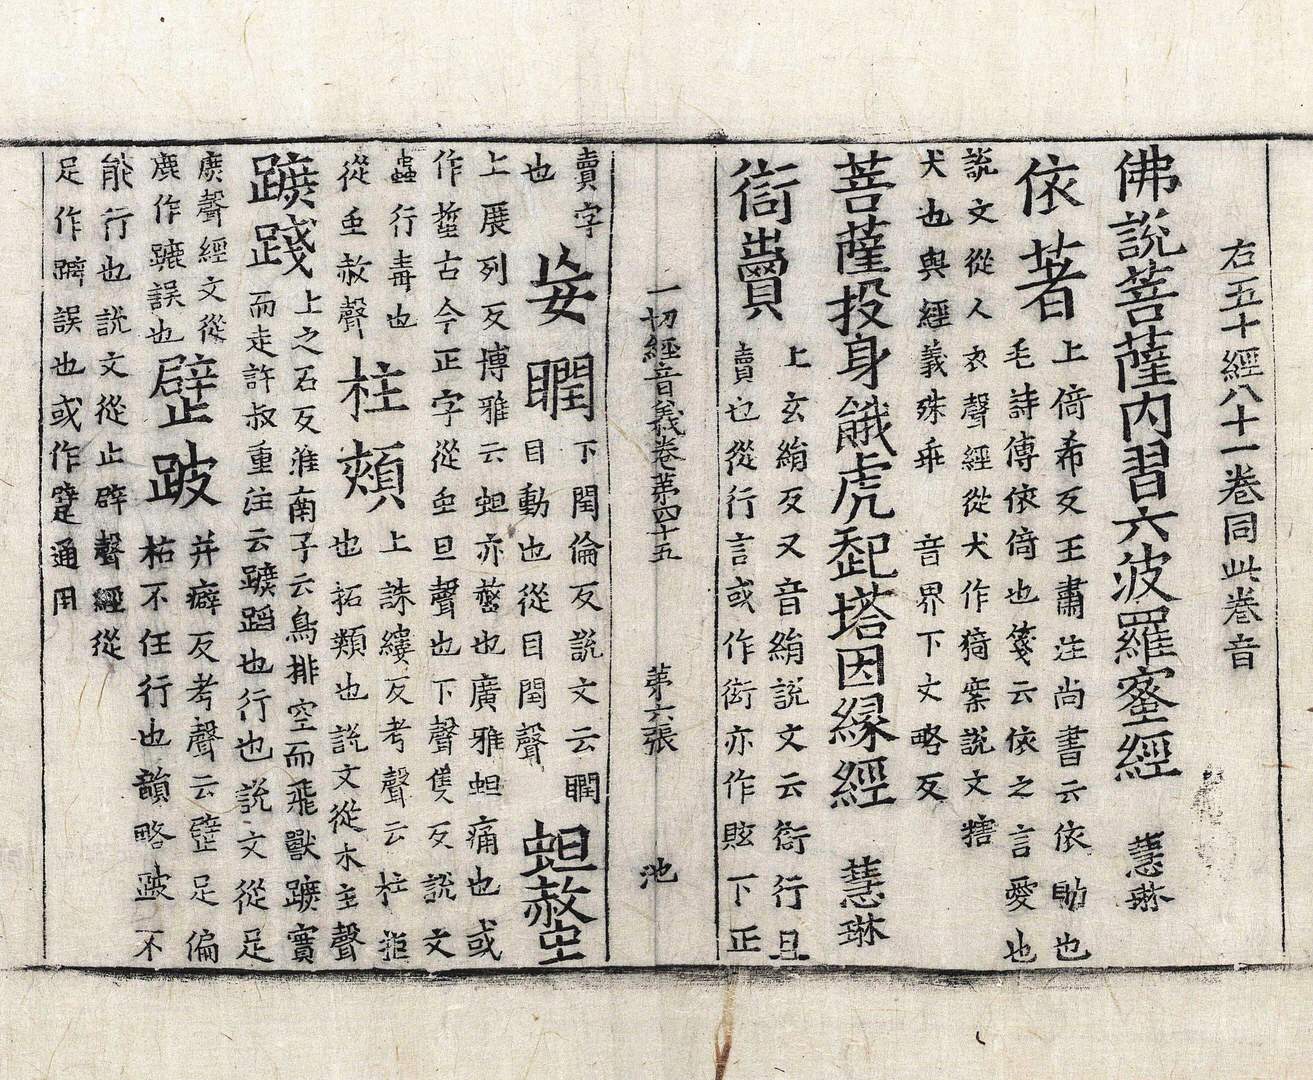 右五十經八十一卷同此卷音
佛說菩薩内習六波羅蜜經 慧琳
依著 上倚希反王肅注尚書云依助也
毛詩傳依倚也箋云依之言愛也
說文從人衣聲經從犬作猗案說文犗
犬也與經義殊乖 音界下文略反
菩薩投身餓虎起塔因緣經 慧琳
衒賣 上玄絹反又音絹說文云衒行且
賣也從行言或作衒亦作眩下正
一切經音義卷第四十五 第六張 池
賣字
也 妛瞤 下閏倫反說文云瞤
目動也從目閏聲 蛆螫
上展列反博雅云蛆亦螫也廣雅蛆痛也或
作蜇古今正字從虫旦聲也下聲隻反說文
蟲行毒也
從虫赦聲 柱頰 上誅縷反考聲云柱拒
也拓頰也說文從木主聲
蹠踐 上之石反淮南子云鳥排空而飛獸蹠實
而走許叔重注云蹠蹈也行也說文從足
庶聲經文從
鹿作蹗誤也 躄跛 并癖反考聲云躄足偏
枯不任行也韻略跛不
能行也說文從止辟聲經從
足作躃誤也或作躄通用